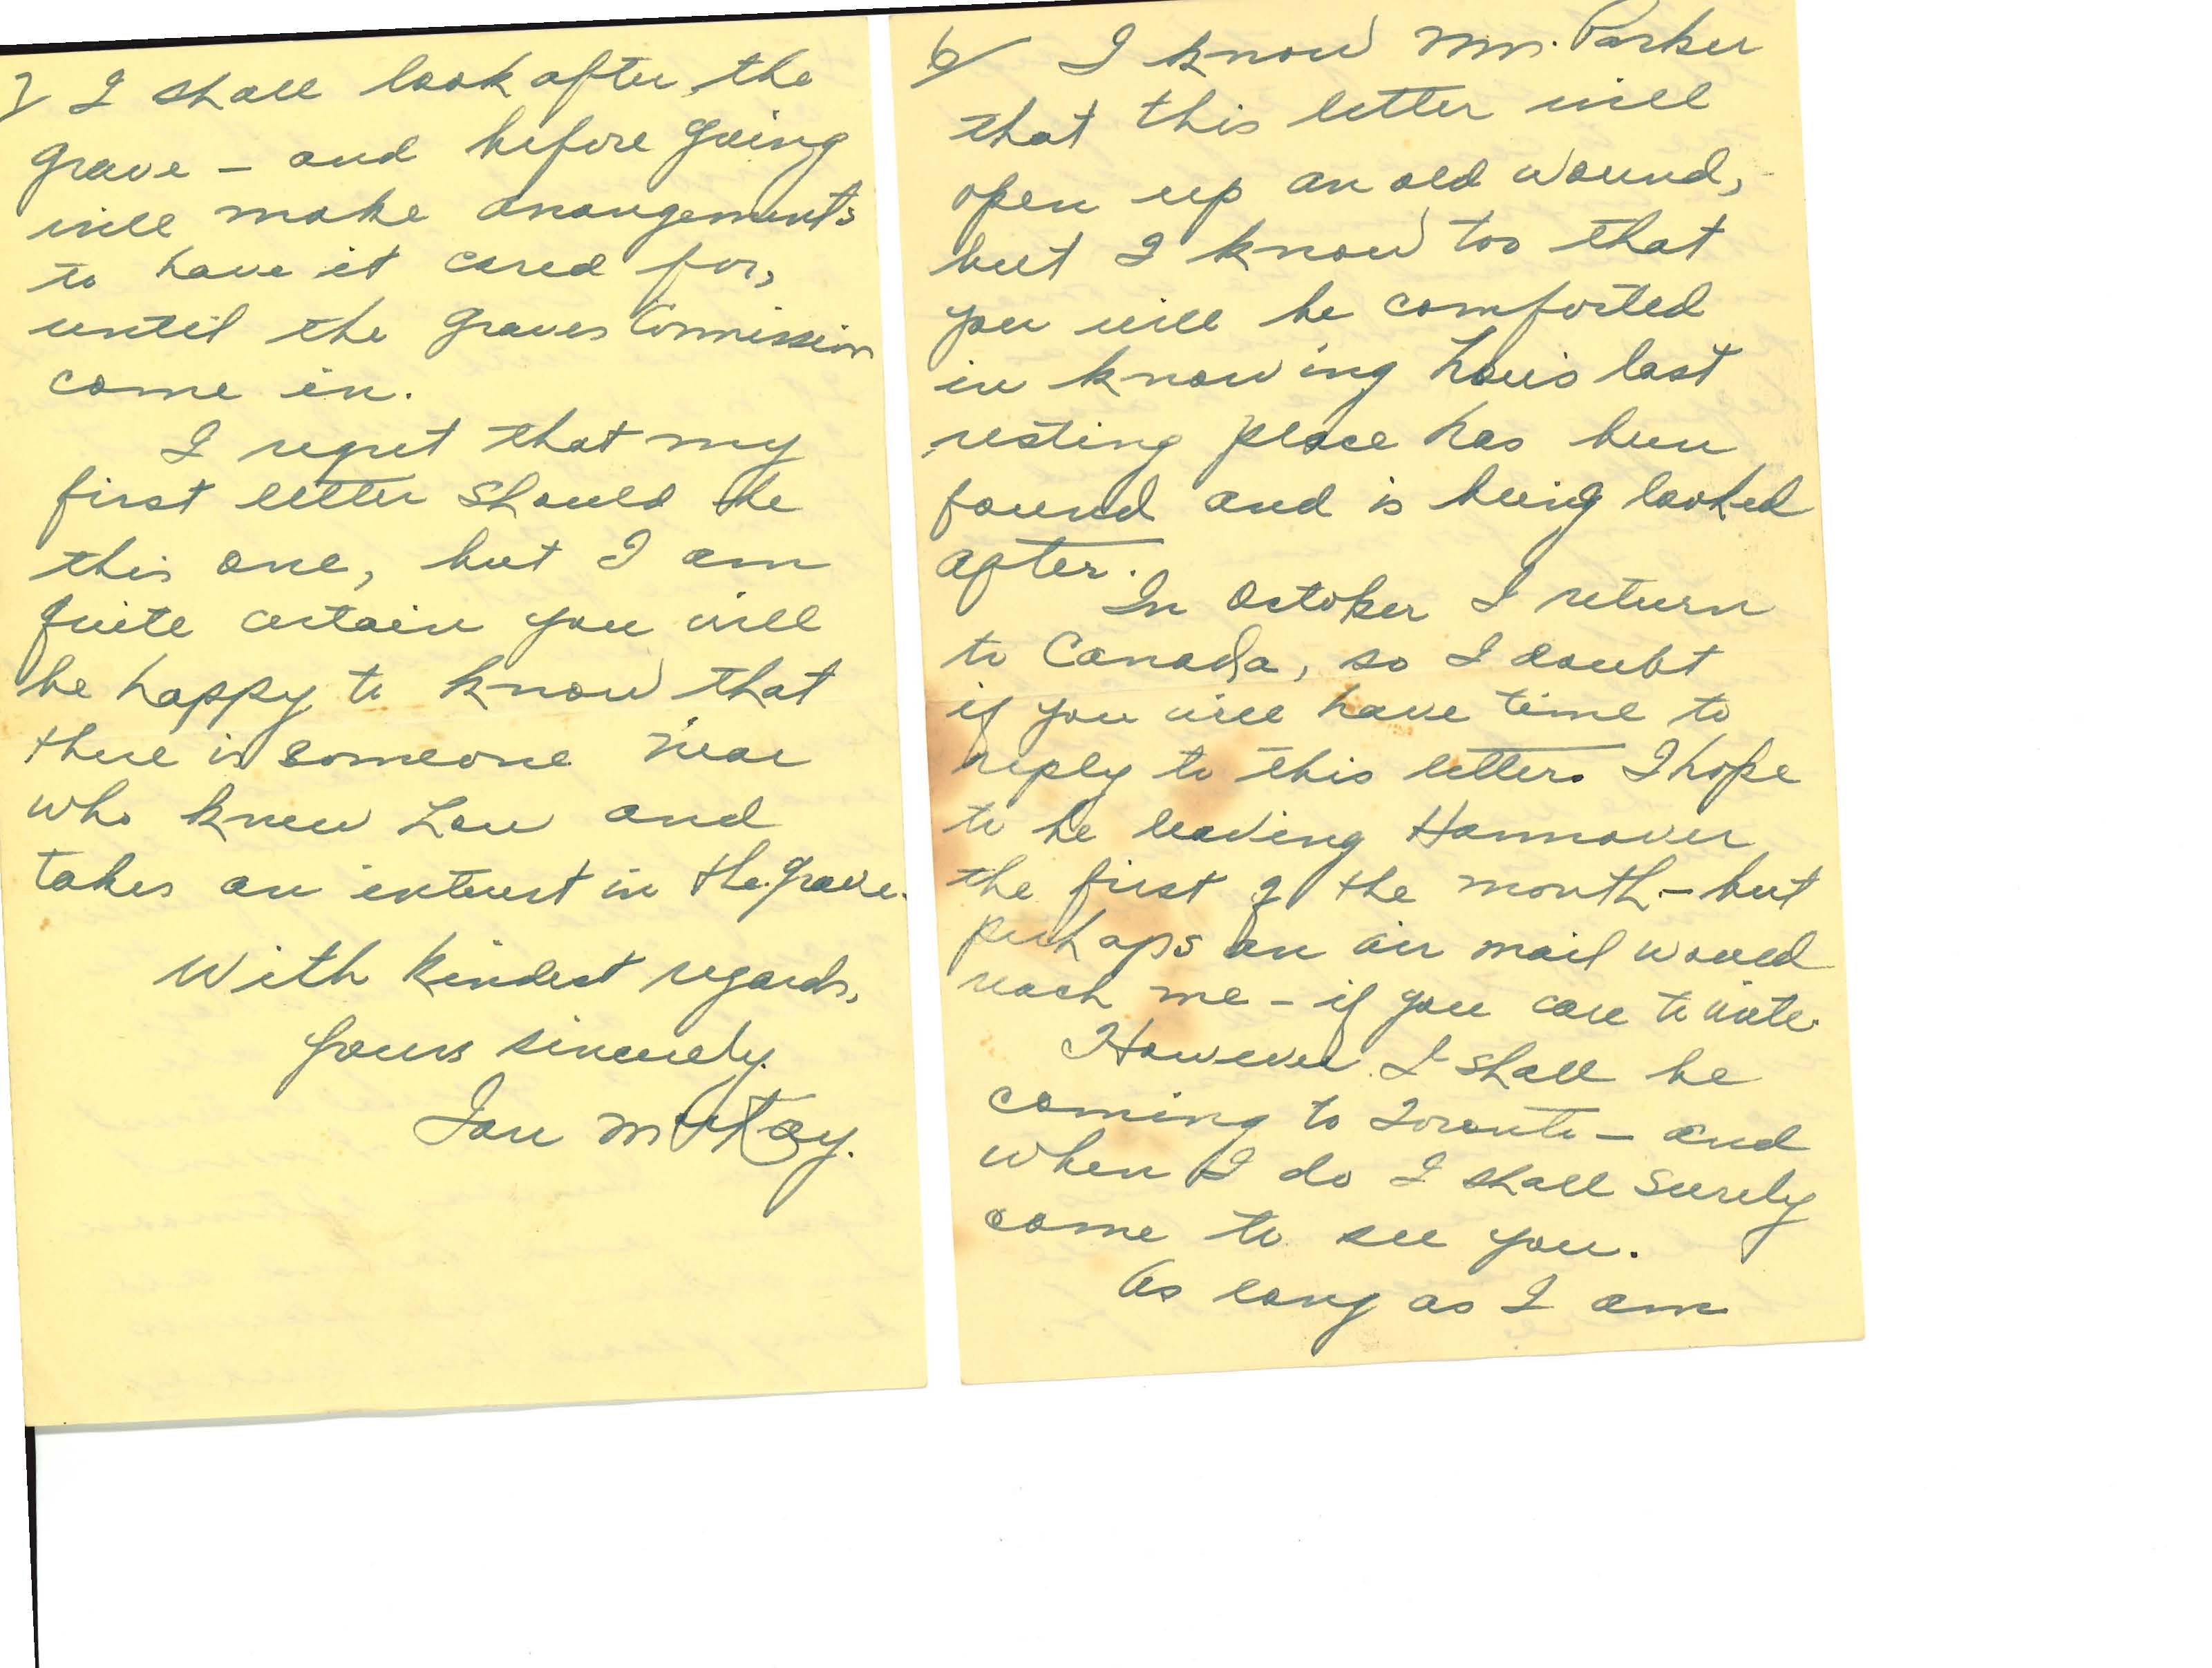 7/ I shall look after the
grave - and before going
will make arrangements
to have it cared for,
until the Graves Commission
come in.
I regret that my
first letter should be
this one, but I am
quite certain you will
be happy to know that
there is someone near
who knew Lou and
takes an interest in the grave.
With kindest regards,
Yours sincerely.
Ian
6/ I know Mrs. Parker
that this letter will
open up an old wound,
but I know too that
you will be comforted
in knowing Lou's last
resting place has been
found and is being looked
after.
In October I return
to Canada, so I doubt
if you will have time to
reply to this letter. I hope
to be leaving Hannover
the first of the month - but
perhaps an air mail would
reach me - if you care to write.
However I shall be
coming to Toronto - and
when I do I shall surely
come to see you.
As long as I am